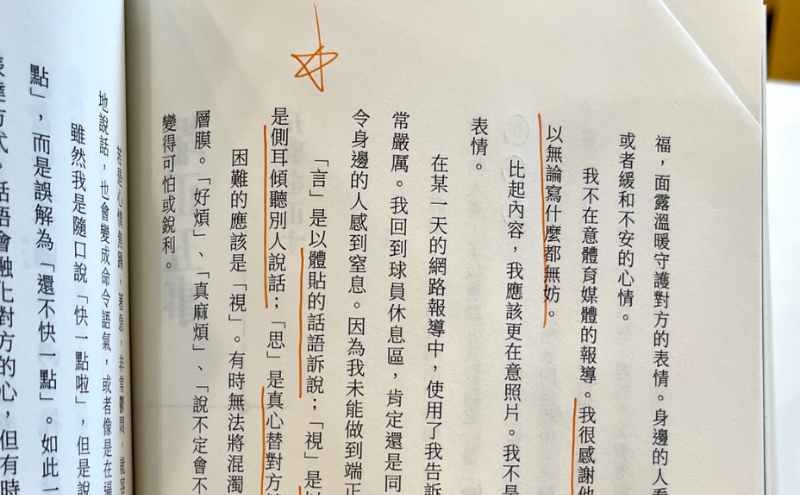 福,面露溫暖守護對方的表情。身邊的人看
或者緩和不安的心情。
我不在意體育媒體的報導。我很感謝他
以無論寫什麼都無妨。
比起內容,我應該更在意照片。我不是
表情。
在某一天的網路報導中,使用了我告訴
常嚴厲。我回到球員休息區,肯定還是同
令身邊的人感到窒息。因為我未能做到端正
「言」是以體貼的話語訴說;「視」是以
是側耳傾聽別人說話;「思」是真心替對方
困難的應該是「視」。有時無法將混濁
層膜。「好煩」、「真麻煩」、「說不定會不
變得可怕或銳利。
地說話,也會變成命令語氣,或者像是在逼
雖然我是隨口說「快一點啦」,但是說
點」,而是誤解為「還不快一點」。如此一
表達方式。話語會融化對方的心,但有時